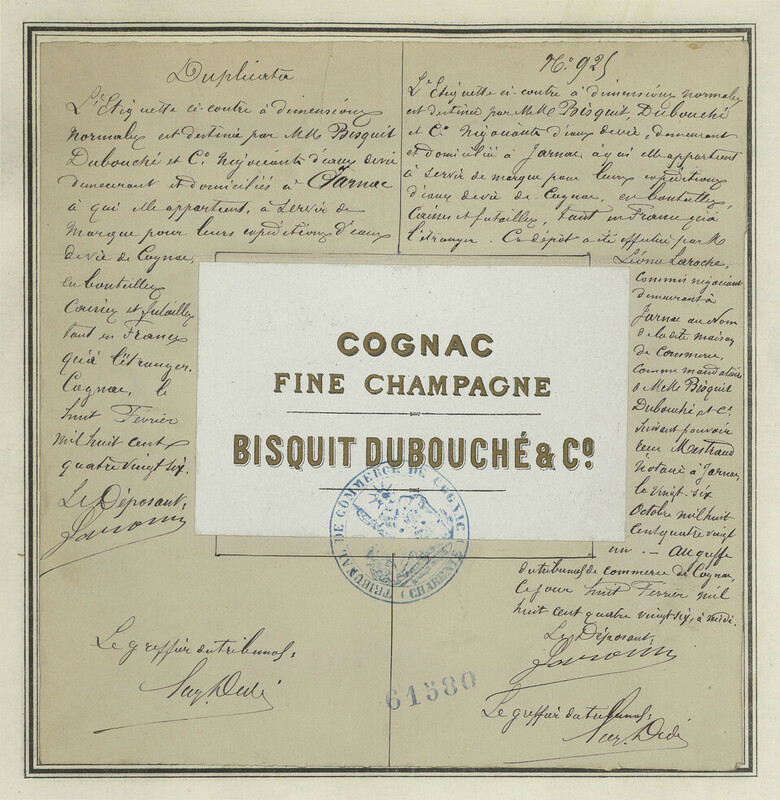 Duplicata
L'Etiquette ci-contre à dimensions
normales est destinée par MM. Bisquit
Dubouché et Cº Négociants d'eaux de vie
demeurant et domiciliés à Jarnac
à qui elle appartient, à servir de
marque pour leurs expéditions d'eaux
de vie de Cognac,
en bouteilles
Caisses et futailles
tant en France
qu'à l'étranger.
Cognac, le
huit Février
mil huit cent
quatre vingt six.
Le Déposant,
Laroche
Le greffier du tribunal:
Nº 925
L'Etiquette ci-contre à dimensions normales
est destinée par MM. Bisquit, Dubouché
et Cº Négociants d'eaux de vie, demeurant
et domiciliés à Jarnac à qui elle appartient
à servir de marque pour leurs expéditions
d'eaux de vie de Cognac, en bouteilles,
Caisses et futailles, tant en France qu'à
l'étranger. Ce dépôt a été effectué par M.
Léonce Laroche,
Commis négociant
demeurant à
Jarnac au Nom
de la dite maison
de Commerce,
Comme mandataire
de MM. Bisquit
Dubouché et Cº
suivant pouvoir
reçu Mestraud
Notaire à Jarnac,
le vingt-six
Octobre mil huit
Cent quatre vingt
un. - Au greffe
du tribunal de commerce de Cognac,
Ce jour huit Février mil
huit cent quatre vingt six, à midi.
Le Déposant,
Laroche
Le greffier du tribunal:
COGNAC
FINE CHAMPAGNE
BISQUIT DUBOUCHÉ & Cº
TRIBUNAL DE COMMERCE DE COGNAC
(CHARENTE)
61580